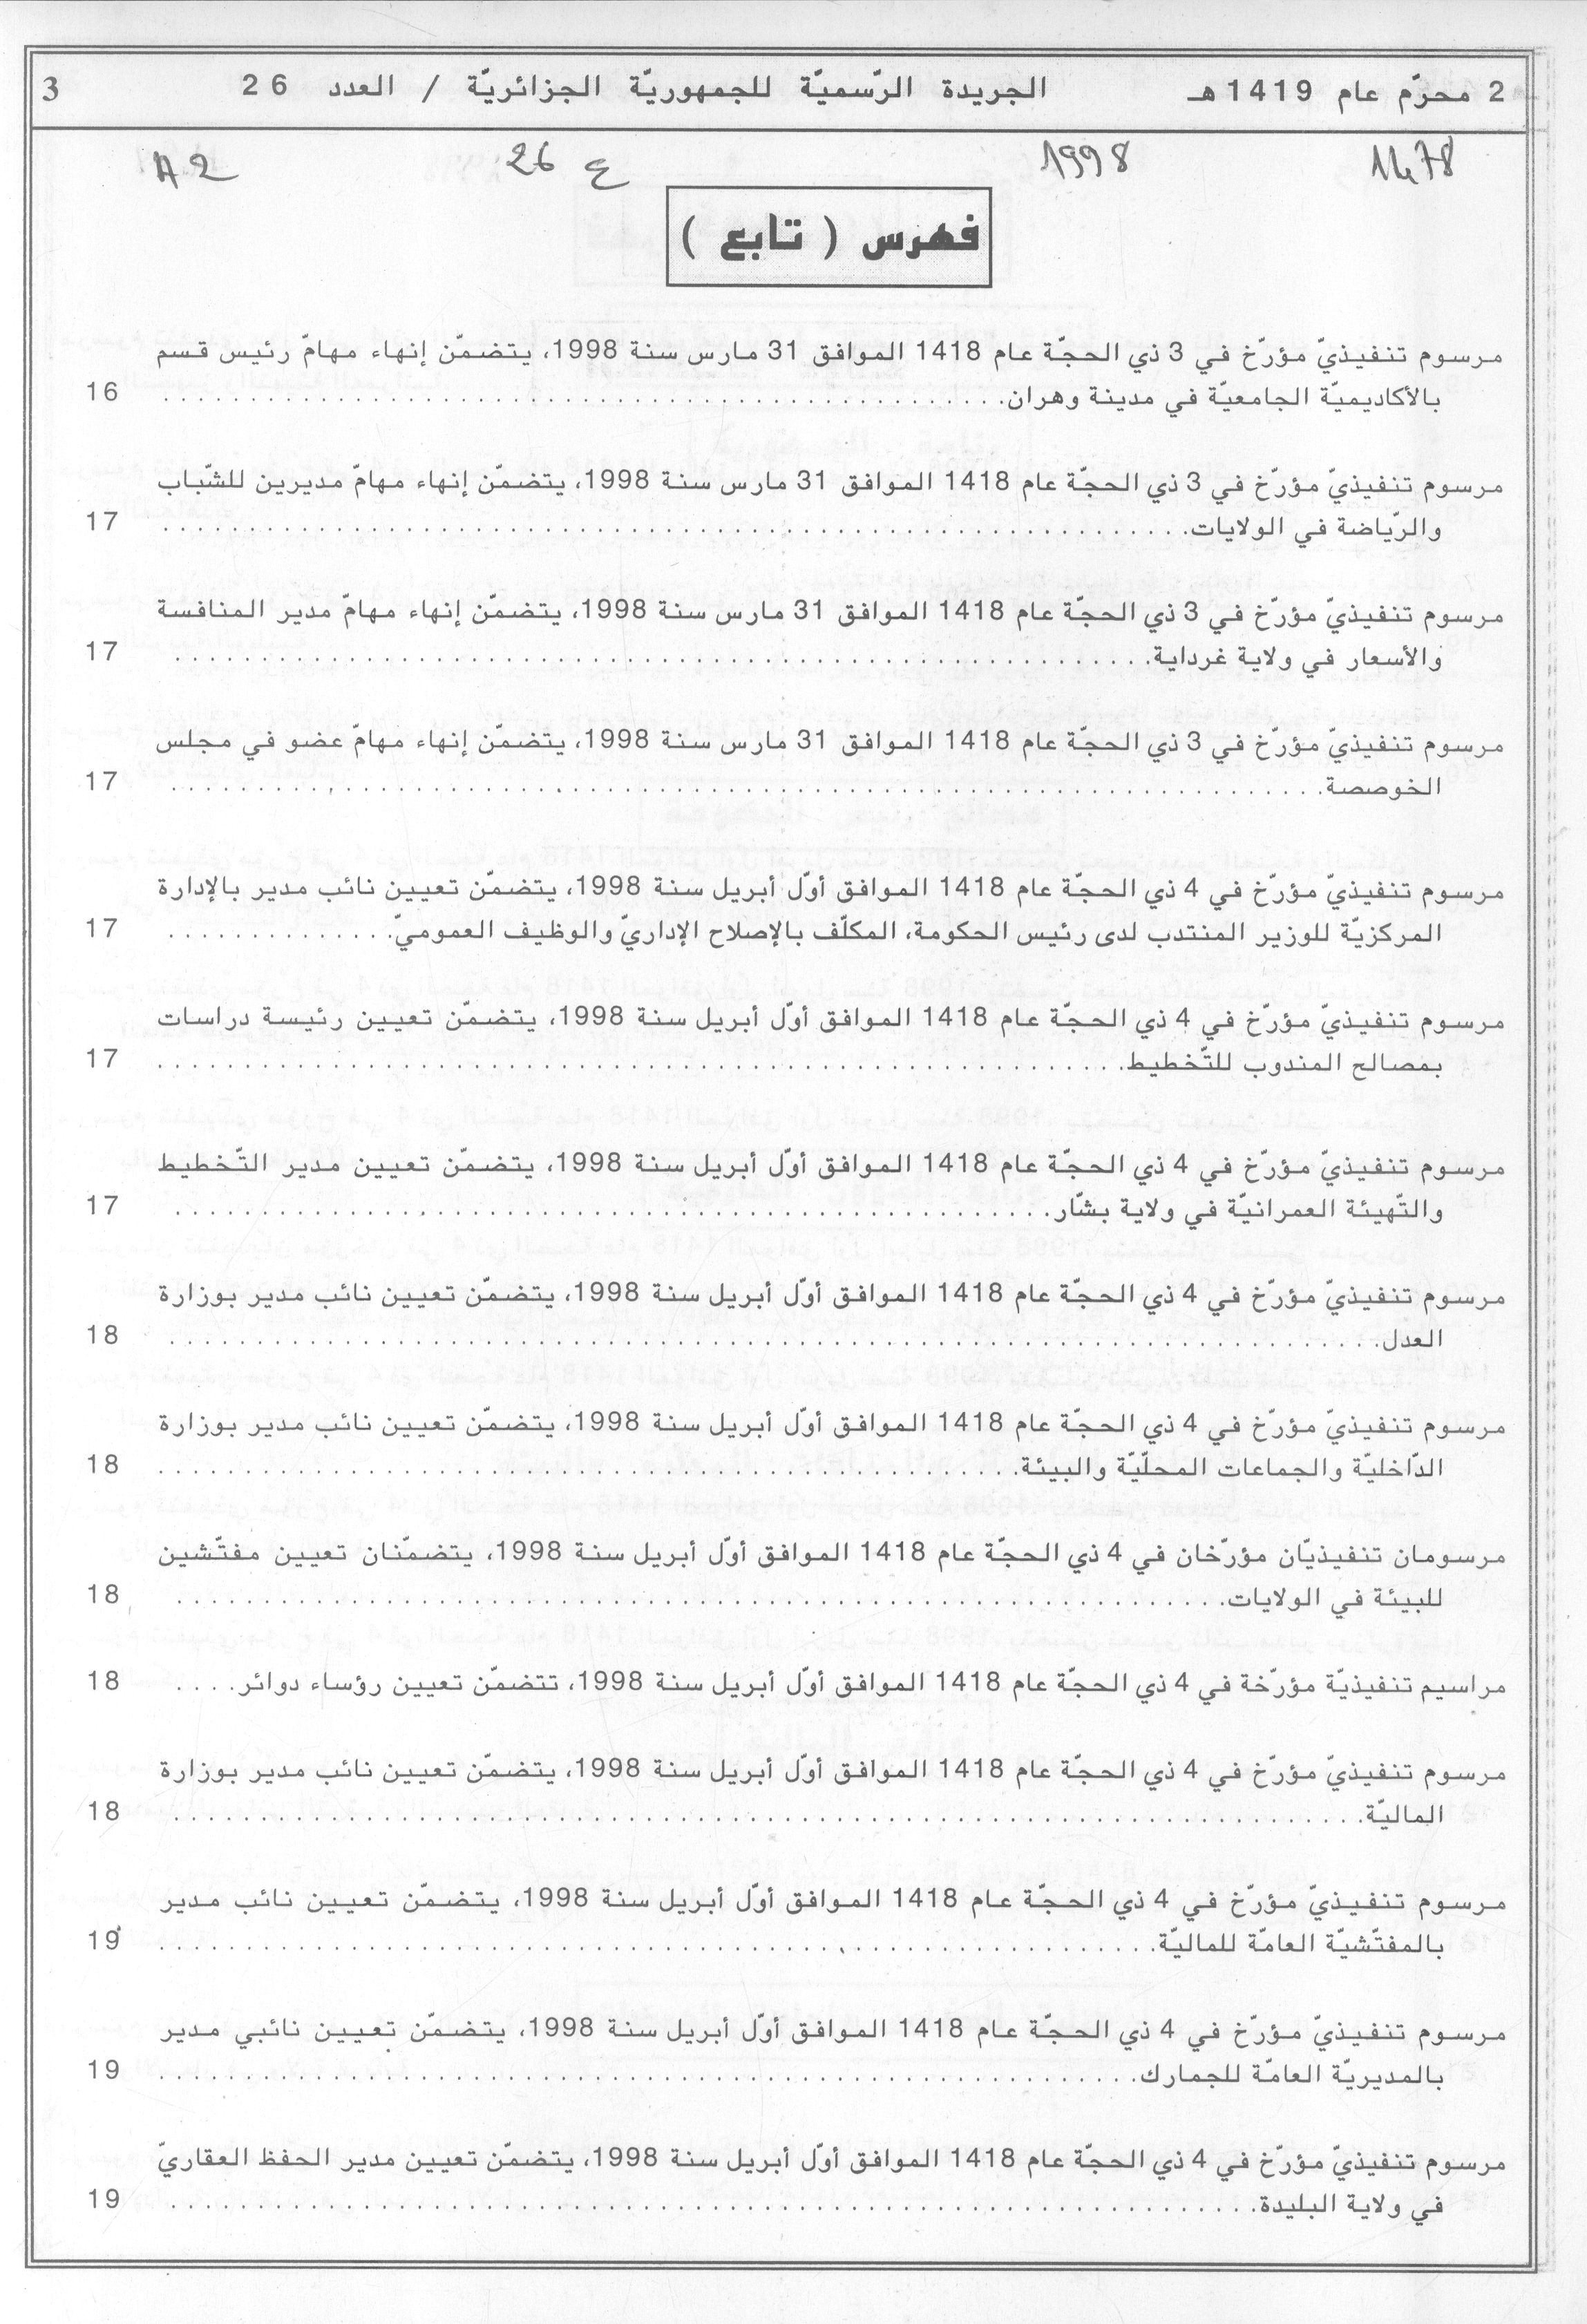 2 محرّم عام 1419 هـ الجريدة الرّسميّة للجمهوريّة الجزائريّة / العدد 26 3
1998 ع 26 A2
فهرس ( تابع )
مرسوم تنفيذيّ مؤرّخ في 3 ذي الحجّة عام 1418 الموافق 31 مارس سنة 1998، يتضمّن إنهاء مهامّ رئيس قسم
بالأكاديميّة الجامعيّة في مدينة وهران. 16
مرسوم تنفيذيّ مؤرّخ في 3 ذي الحجّة عام 1418 الموافق 31 مارس سنة 1998، يتضمّن إنهاء مهامّ مديرين للشّباب
والرّياضة في الولايات. 17
مرسوم تنفيذيّ مؤرّخ في 3 ذي الحجّة عام 1418 الموافق 31 مارس سنة 1998، يتضمّن إنهاء مهامّ مدير المنافسة
والأسعار في ولاية غرداية. 17
مرسوم تنفيذيّ مؤرّخ في 3 ذي الحجّة عام 1418 الموافق 31 مارس سنة 1998، يتضمّن إنهاء مهامّ عضو في مجلس
الخوصصة. 17
مرسوم تنفيذيّ مؤرّخ في 4 ذي الحجّة عام 1418 الموافق أوّل أبريل سنة 1998، يتضمّن تعيين نائب مدير بالإدارة
المركزيّة للوزير المنتدب لدى رئيس الحكومة، المكلّف بالإصلاح الإداريّ والوظيف العموميّ. 17
مرسوم تنفيذيّ مؤرّخ في 4 ذي الحجّة عام 1418 الموافق أوّل أبريل سنة 1998، يتضمّن تعيين رئيسة دراسات
بمصالح المندوب للتّخطيط. 17
مرسوم تنفيذيّ مؤرّخ في 4 ذي الحجّة عام 1418 الموافق أوّل أبريل سنة 1998، يتضمّن تعيين مدير التّخطيط
والتّهيئة العمرانيّة في ولاية بشّار. 17
مرسوم تنفيذيّ مؤرّخ في 4 ذي الحجّة عام 1418 الموافق أوّل أبريل سنة 1998، يتضمّن تعيين نائب مدير بوزارة
العدل. 18
مرسوم تنفيذيّ مؤرّخ في 4 ذي الحجّة عام 1418 الموافق أوّل أبريل سنة 1998، يتضمّن تعيين نائب مدير بوزارة
الدّاخليّة والجماعات المحلّيّة والبيئة. 18
مرسومان تنفيذيّان مؤرّخان في 4 ذي الحجّة عام 1418 الموافق أوّل أبريل سنة 1998، يتضمّنان تعيين مفتّشين
للبيئة في الولايات. 18
مراسيم تنفيذيّة مؤرّخة في 4 ذي الحجّة عام 1418 الموافق أوّل أبريل سنة 1998، تتضمّن تعيين رؤساء دوائر. 18
مرسوم تنفيذيّ مؤرّخ في 4 ذي الحجّة عام 1418 الموافق أوّل أبريل سنة 1998، يتضمّن تعيين نائب مدير بوزارة
الماليّة. 18
مرسوم تنفيذيّ مؤرّخ في 4 ذي الحجّة عام 1418 الموافق أوّل أبريل سنة 1998، يتضمّن تعيين نائب مدير
بالمفتّشيّة العامّة للماليّة. 19
مرسوم تنفيذيّ مؤرّخ في 4 ذي الحجّة عام 1418 الموافق أوّل أبريل سنة 1998، يتضمّن تعيين نائبي مدير
بالمديريّة العامّة للجمارك. 19
مرسوم تنفيذيّ مؤرّخ في 4 ذي الحجّة عام 1418 الموافق أوّل أبريل سنة 1998، يتضمّن تعيين مدير الحفظ العقاريّ
في ولاية البليدة. 19